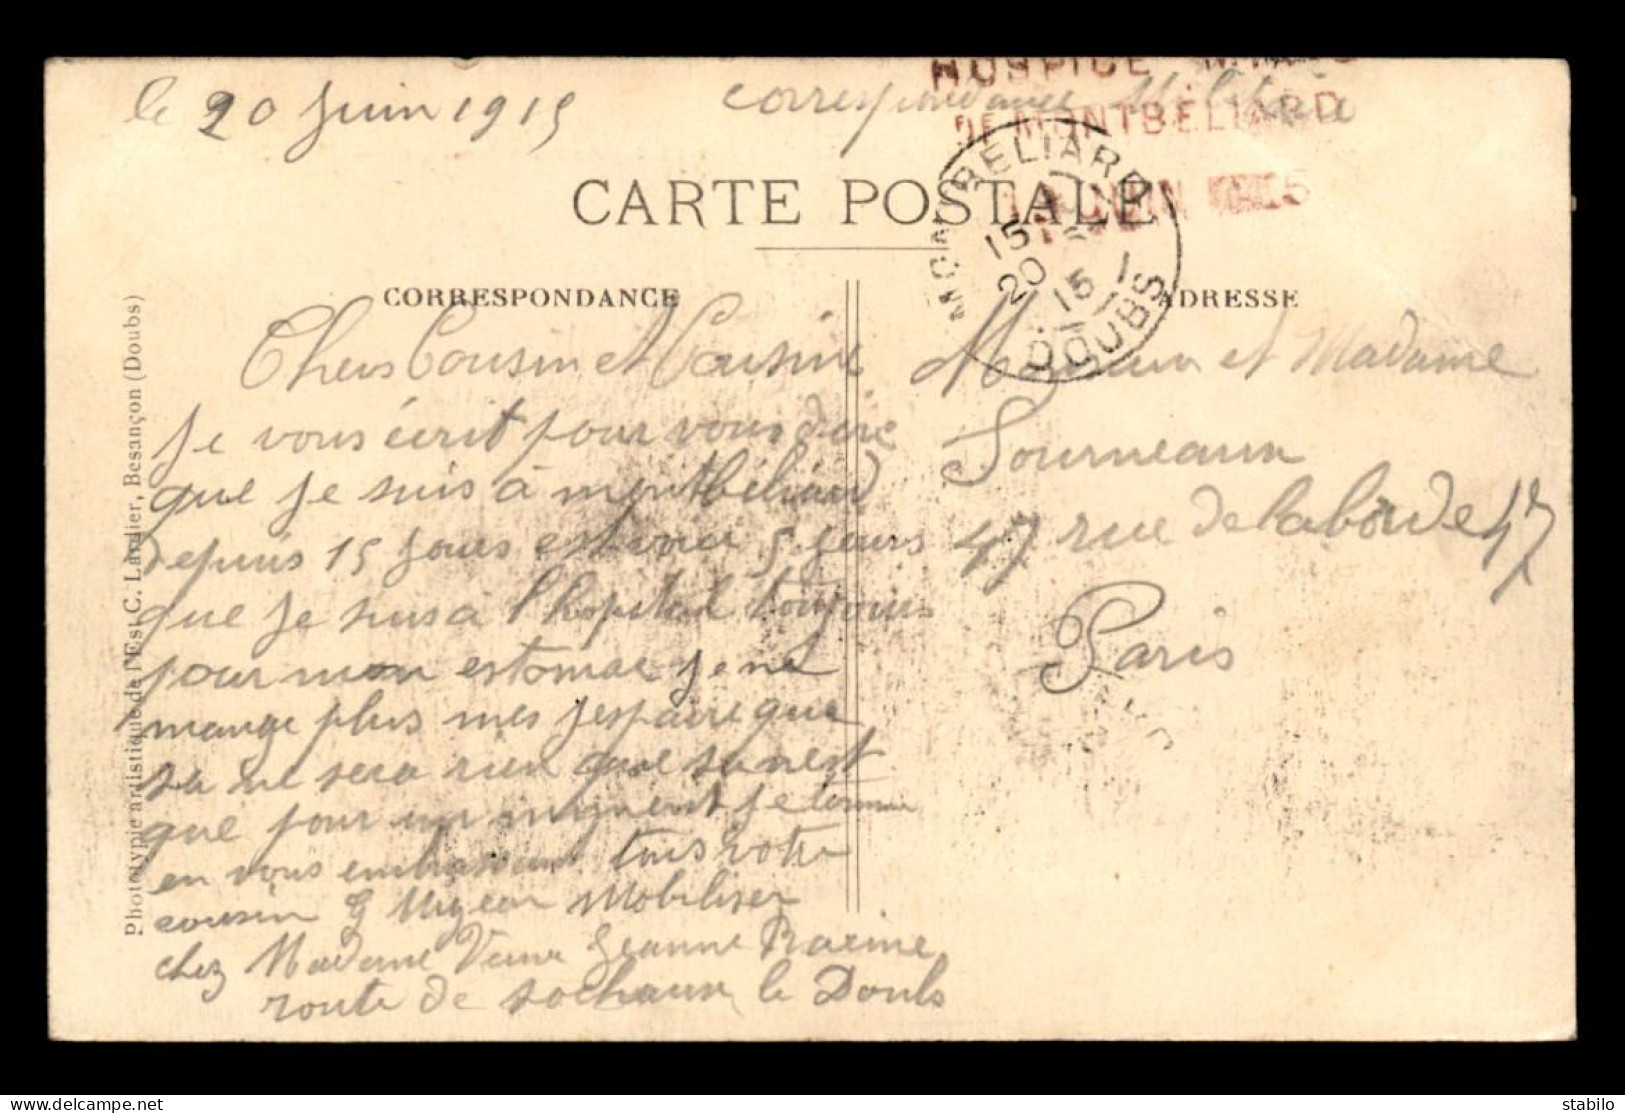 le 20 Juin 1915
correspondance Militaire
HOSPICE
DE MONTBÉLIARD
JUIN
MONTBELIARD
15
20
15
DOUBS
CARTE POSTALE
CORRESPONDANCE
ADRESSE
Chers Cousin et Cousine
Je vous écrit pour vous dire
que je suis à montbéliard
depuis 15 jours est voici 5 jours
que je suis à l'hopital toujours
pour mon estomac je ne
mange plus mes j'espaire que
sa ne sera rien que sa nest
que pour un moment je termine
en vous embrassant tous votre
cousin G Migeon Mobiliser
chez Madame Veuve Jeanne Racine
route de sochaux le Doubs
Monsieur et Madame
Fourneaux
47 rue de laborde 47
Paris
Phototypie artistique de l'Est C. Lardier, Besançon (Doubs)
stabilo